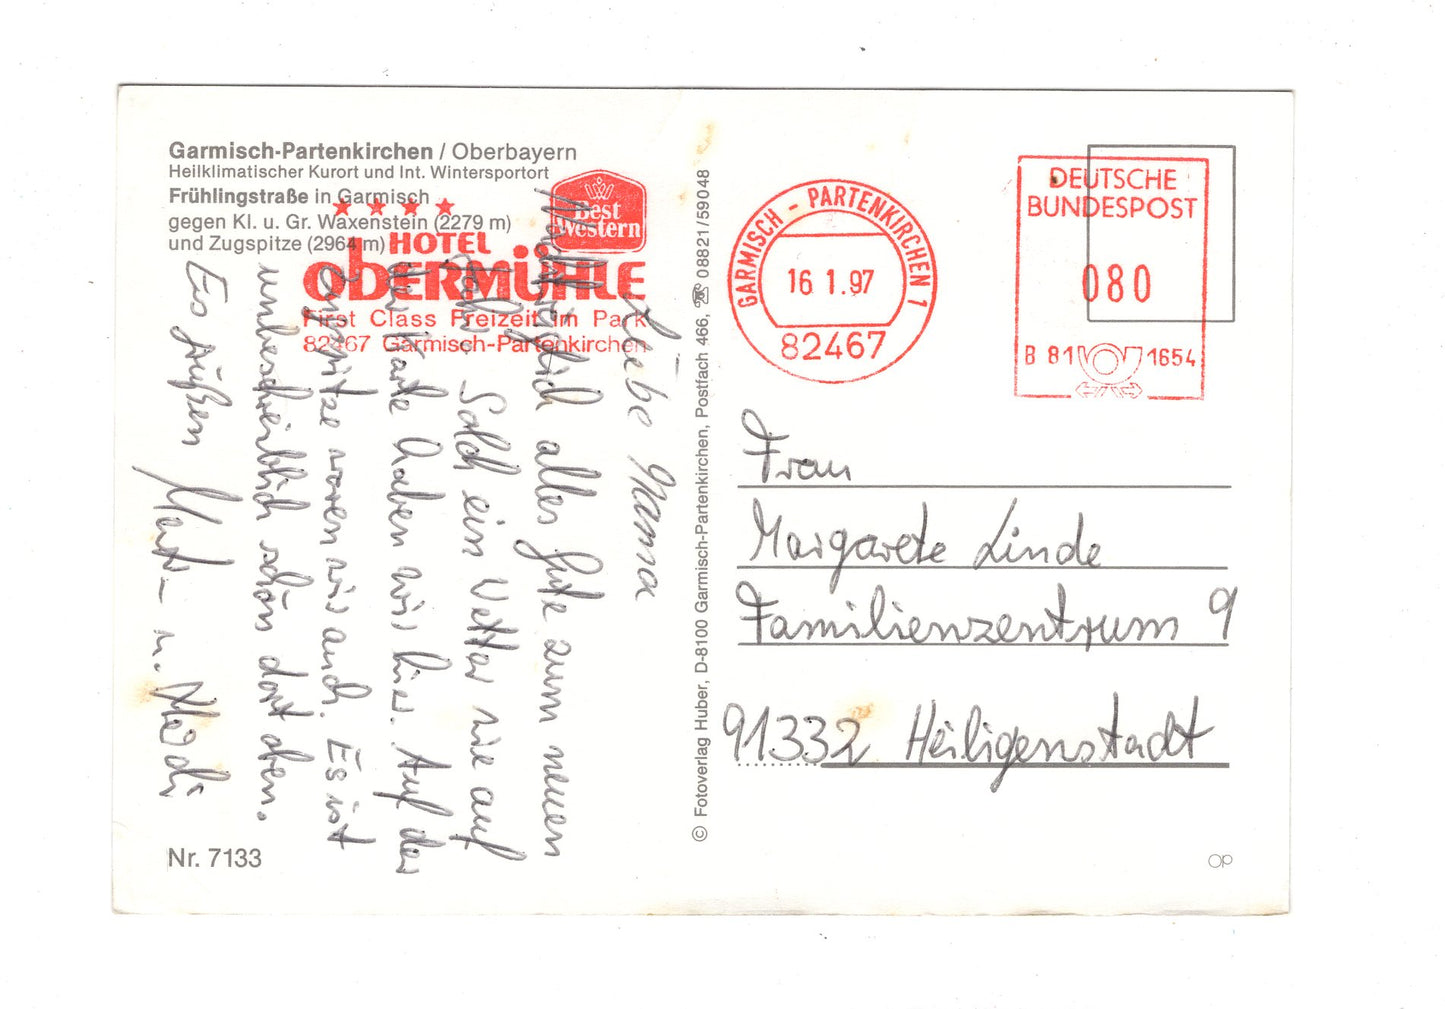 Garmisch-Partenkirchen / Oberbayern
Heilklimatischer Kurort und Int. Wintersportort
Frühlingstraße in Garmisch
gegen Kl. u. Gr. Waxenstein (2279 m)
und Zugspitze (2964 m)
Best
Western
HOTEL
OBERMÜHLE
First Class Freizeit im Park
82467 Garmisch-Partenkirchen
Liebe Mama
Nachträglich alles Gute zum neuen
Jahr. Solch ein Wetter wie auf
der Karte haben wir hier. Auf der
Zugspitze waren wir auch. Es ist
unbeschreiblich schön dort oben.
Es grüßen
u. Heidi
Nr. 7133
© Fotoverlag Huber, D-8100 Garmisch-Partenkirchen, Postfach 466, ☏ 08821/59048
GARMISCH - PARTENKIRCHEN 1
16 1.97
82467
DEUTSCHE
BUNDESPOST
080
B 81 1654
Frau
Margarete Linde
Familienzentrum 9
91332 Heiligenstadt
OP